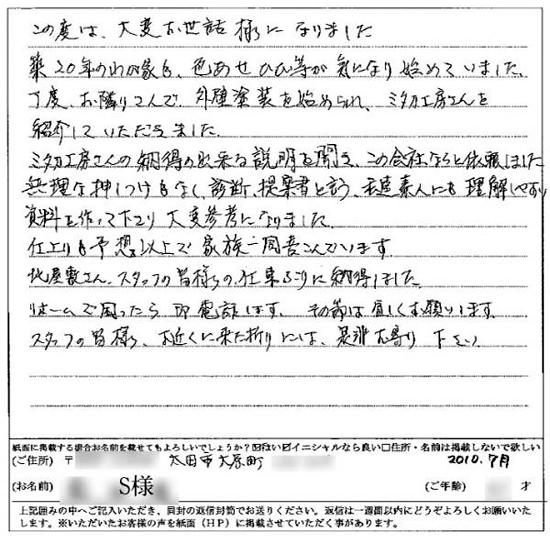 この度は、大変お世話様になりました
築20年のわが家も、色あせひび等が気になり始めていました。
丁度、お隣りさんで、外壁塗装を始められ、ミタカ工房さんを
紹介していただきました。
ミタカ工房さんの納得の出来る説明を聞き、この会社ならと依頼しました
無理な押しつけもなく、診断、提案書と言う、私達素人にも理解しやすい
資料を作って下さり大変参考になりました。
仕上りも予想以上で家族一同喜こんでいます。
北屋敷さん、スタッフの皆様の、仕事ぶりに納得しました。
リホームで困ったら即電話します。その節は宜しくお願いします。
スタッフの皆様、お近くに来た折りには、是非お寄り下さい。
紙面に掲載する場合お名前を載せてもよろしいでしょうか?☑はい☑イニシャルなら良い□住所・名前は掲載しないで欲しい
(ご住所) 〒 太田市大原町 2010.7月
(お名前) S様 (ご年齢) 才
上記囲みの中へご記入いただき、同封の返信封筒でお送りください。返信は一週間以内にどうぞよろしくお願いいた
します。※いただいたお客様の声を紙面(HP)に掲載させていただく事があります。